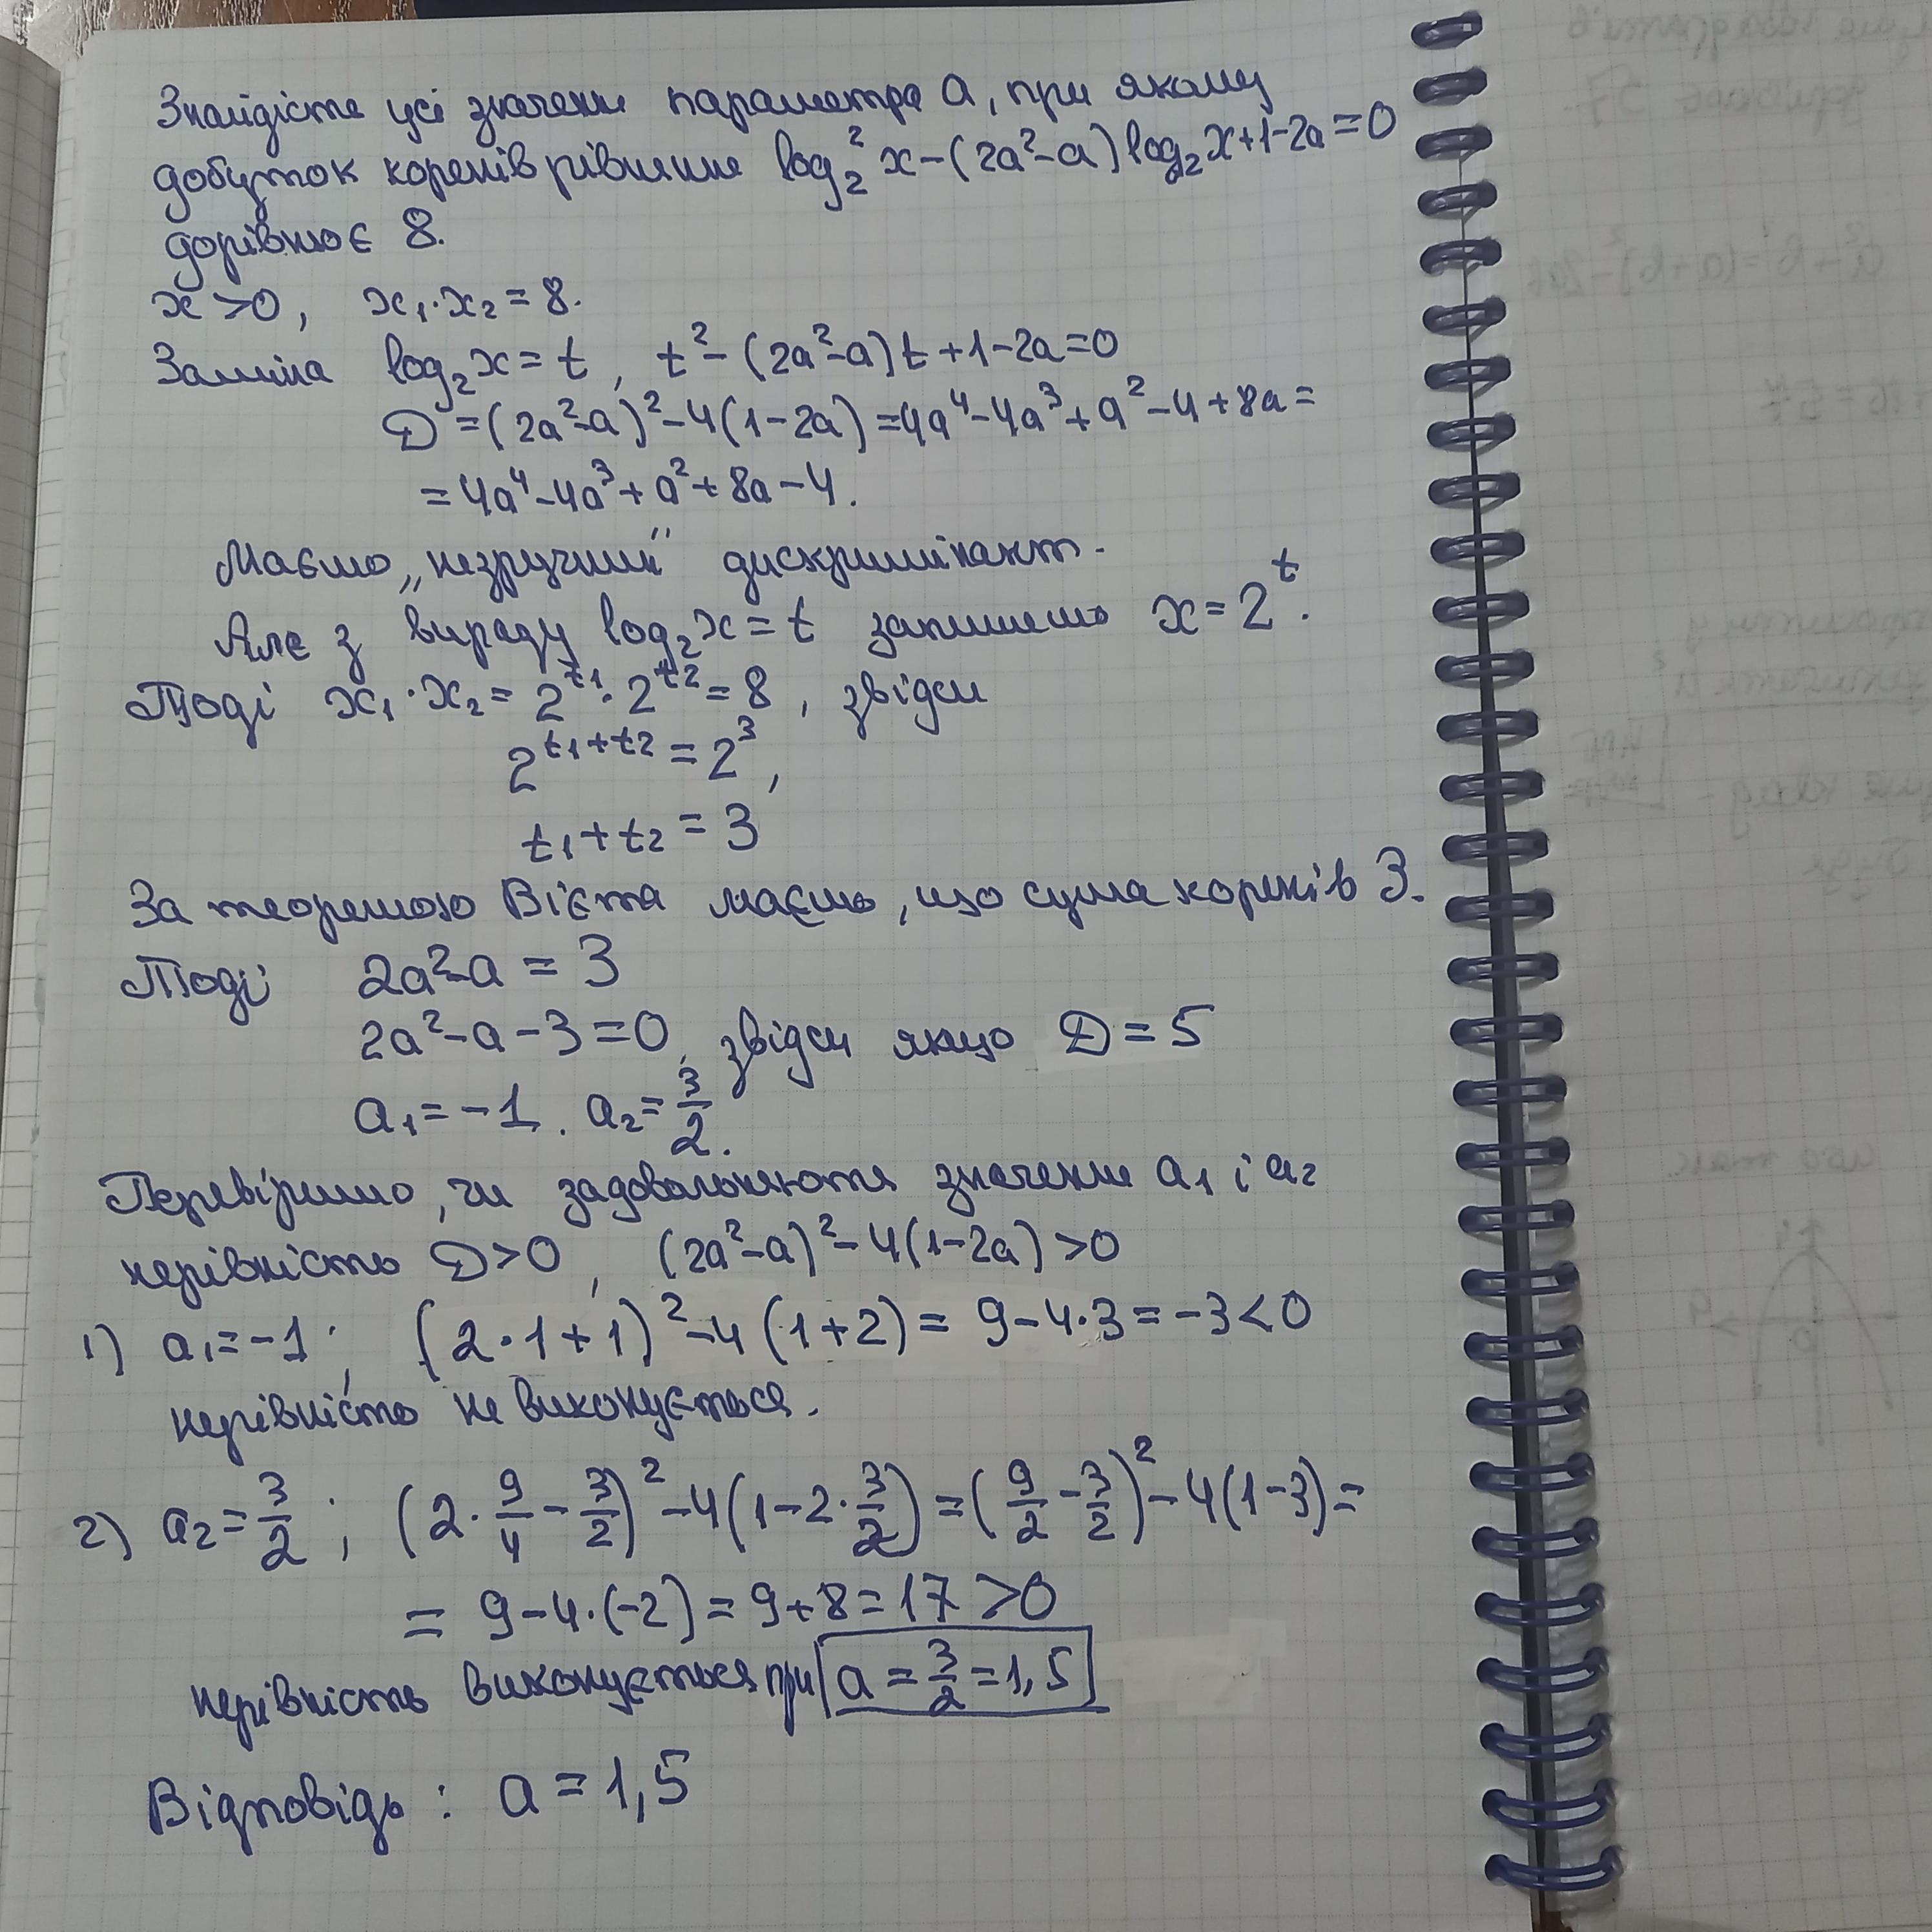 Знайдіть усі значення параметра a, при якому
добуток коренів рівняння log₂²x-(2a²-a)log₂x+1-2a=0
дорівнює 8.
x>0, x₁·x₂=8.
Заміна log₂x=t, t²-(2a²-a)t+1-2a=0
D=(2a²-a)²-4(1-2a)=4a⁴-4a³+a²-4+8a=
=4a⁴-4a³+a²+8a-4.
Маємо „незручний" дискримінант.
Але з виразу log₂x=t запишемо x=2^t.
Тоді x₁·x₂=2^t₁·2^t₂=8, звідси
2^(t₁+t₂)=2³,
t₁+t₂=3
За теоремою Вієта маємо, що сума коренів 3.
Тоді 2a²-a=3
2a²-a-3=0, звідси якщо D=5
a₁=-1. a₂=3/2.
Перевіримо, чи задовольняють значення a₁ і a₂
нерівність D>0, (2a²-a)²-4(1-2a)>0
1) a₁=-1; (2·1+1)²-4(1+2)=9-4·3=-3<0
нерівність не виконується.
2) a₂=3/2; (2·9/4-3/2)²-4(1-2·3/2)=(9/2-3/2)²-4(1-3)=
=9-4·(-2)=9+8=17>0
нерівність виконується при a=3/2=1,5
Відповідь: a=1,5